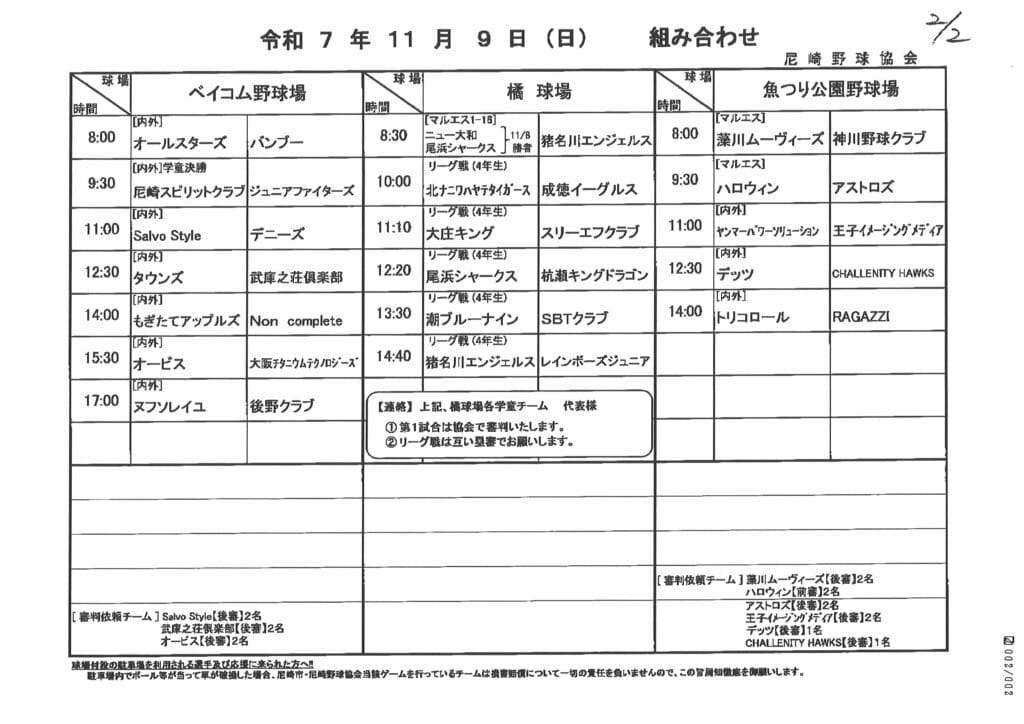 令和 7 年 11 月 9 日 (日) 組み合わせ
2/2
尼崎野球協会
球場 時間 ベイコム野球場
8:00 [内外] オールスターズ バンブー
9:30 [内外]学童決勝 尼崎スピリットクラブ ジュニアファイターズ
11:00 [内外] Salvo Style デニーズ
12:30 [内外] タウンズ 武庫之荘倶楽部
14:00 [内外] もぎたてアップルズ Non complete
15:30 [内外] オービス 大阪チタニウムテクノロジーズ
17:00 [内外] ヌフソレイユ 後野クラブ
[ 審判依頼チーム ] Salvo Style【後審】2名
武庫之荘倶楽部【後審】2名
オービス【後審】2名
球場 時間 橘 球場
8:30 [マルエス1-16] ニュー大和 尾浜シャークス 11/8 勝者 猪名川エンジェルス
10:00 リーグ戦(4年生) 北ナニワハヤテタイガース 成徳イーグルス
11:10 リーグ戦(4年生) 大庄キング スリーエフクラブ
12:20 リーグ戦(4年生) 尾浜シャークス 杭瀬キングドラゴン
13:30 リーグ戦(4年生) 潮ブルーナイン SBTクラブ
14:40 リーグ戦(4年生) 猪名川エンジェルス レインボーズジュニア
【連絡】上記、橘球場各学童チーム 代表様
①第1試合は協会で審判いたします。
②リーグ戦は互い塁審でお願いします。
球場 時間 魚つり公園野球場
8:00 [マルエス] 藻川ムーヴィーズ 神川野球クラブ
9:30 [マルエス] ハロウィン アストロズ
11:00 [内外] ヤンマーパワーソリューション 王子イメージングメディア
12:30 [内外] デッツ CHALLENITY HAWKS
14:00 [内外] トリコロール RAGAZZI
[ 審判依頼チーム ] 藻川ムーヴィーズ【後審】2名
ハロウィン【前審】2名
アストロズ【後審】2名
王子イメージングメディア【後審】2名
デッツ【後審】1名
CHALLENITY HAWKS【後審】1名
球場付設の駐車場を利用される選手及び応援に来られた方へ!!
駐車場内でボール等が当って車が破損した場合、尼崎市・尼崎野球協会当該ゲームを行っているチームは損害賠償について一切の責任を負いませんので、この旨周知徹底を御願いします。
002/002